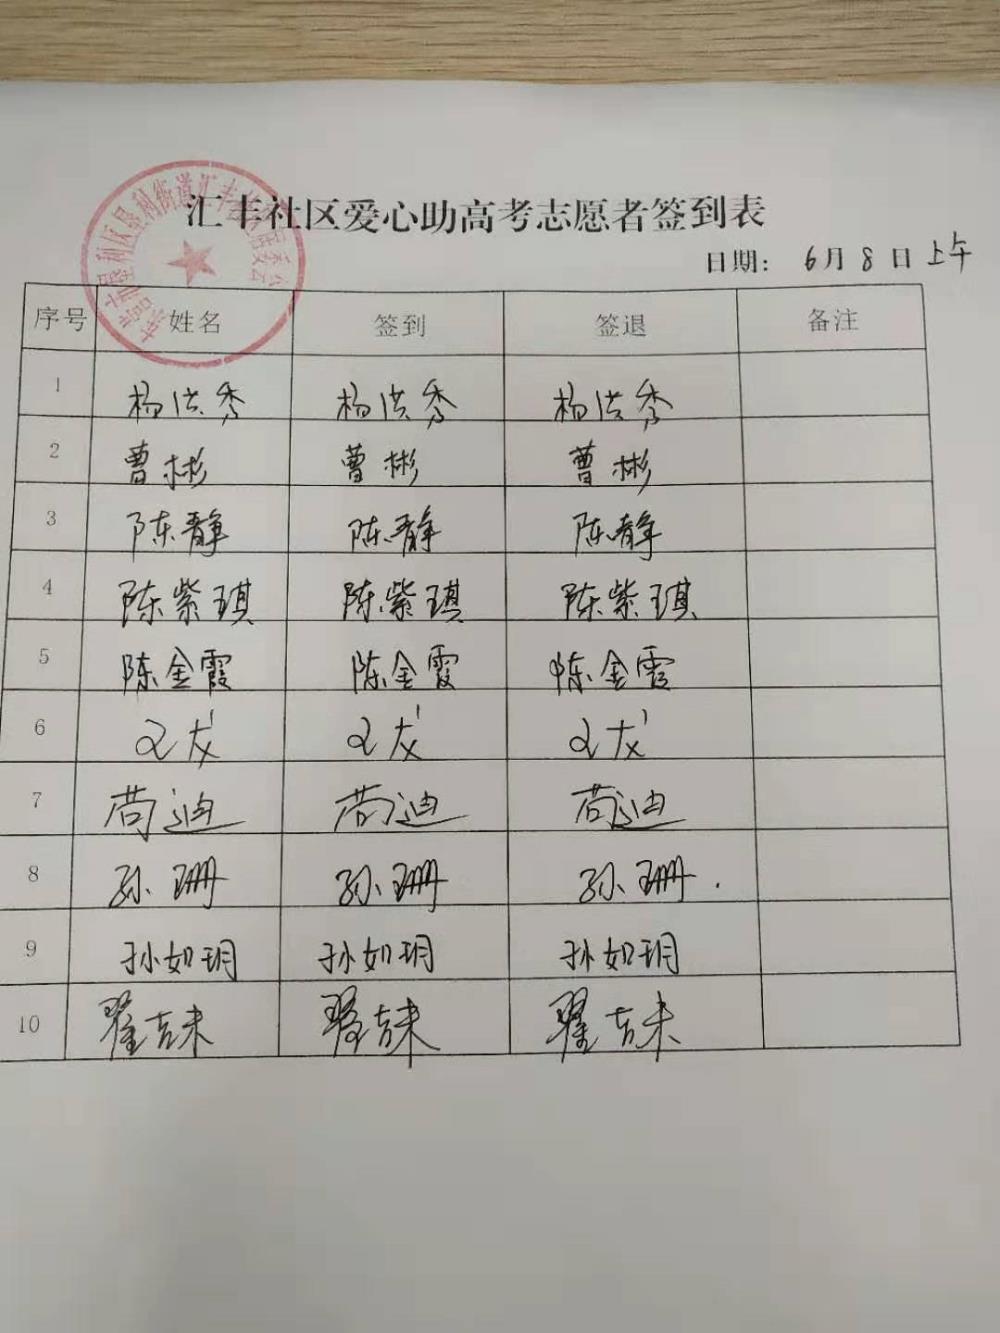 汇丰社区爱心助高考志愿者签到表
日期: 6月8日上午
序号 姓名 签到 签退 备注
1 杨洪秀 杨洪秀 杨洪秀
2 曹彬 曹彬 曹彬
3 陈静 陈静 陈静
4 陈紫琪 陈紫琪 陈紫琪
5 陈金霞 陈金霞 陈金霞
6
7 苘迪 苘迪 苘迪
8 孙珊 孙珊 孙珊
9 孙如玥 孙如玥 孙如玥
10 翟吉来 翟吉来 翟吉来